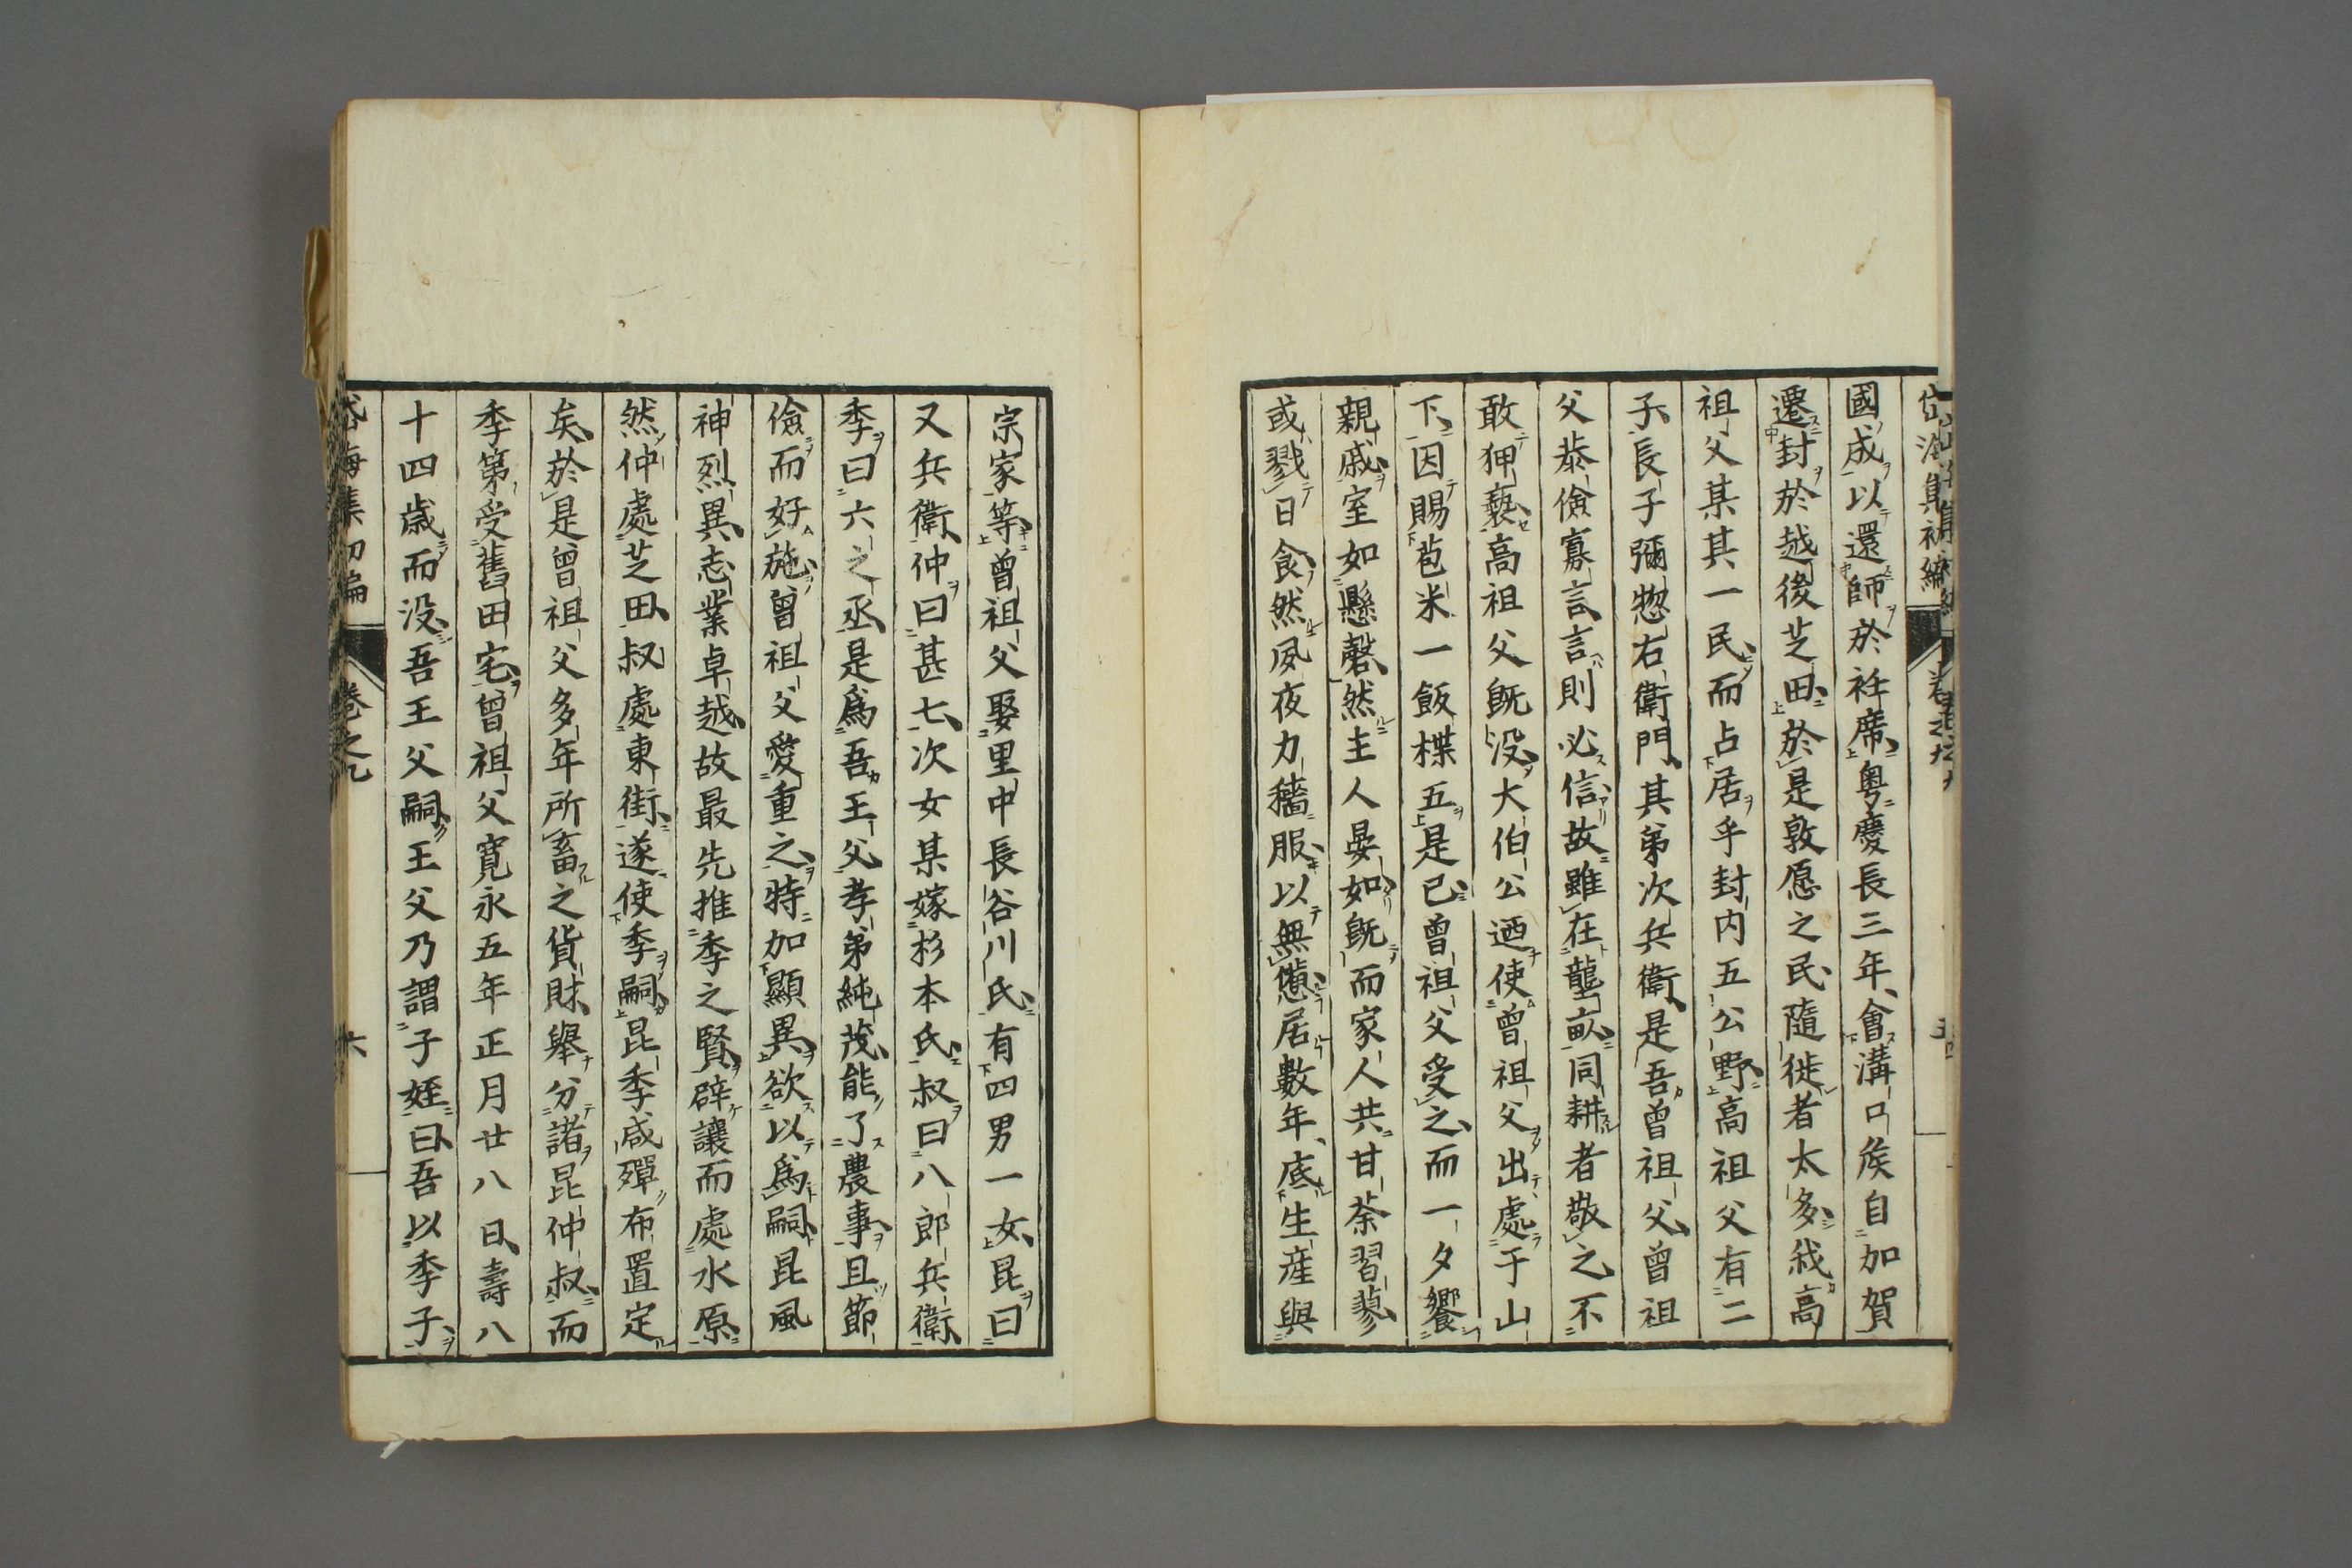 國成以還師於衽席粤慶長三年會溝口矦自加賀
遷封於越後芝田於是敦愿之民隨徙者太多我高
祖父某其一民而占居乎封内五公野高祖父有二
子長子彌惣右衛門其弟次兵衛是吾曾祖父曾祖
父恭儉寡言言則必信故雖在壟畝同耕者敬之不
敢狎褻高祖父既没大伯公迺使曾祖父出處于山
下因賜苞米一飯楪五是已曾祖父受之而一夕饗
親戚室如懸磬然主人晏如既而家人共甘荼習蓼
或戮日食然夙夜力穡服以無憊居數年底生産與
宗家等曾祖父娶里中長谷川氏有四男一女昆曰
又兵衛仲曰甚七次女某嫁杉本氏叔曰八郎兵衛
季曰六之丞是爲吾王父孝弟純茂能了農事且節
儉而好施曾祖父愛重之特加顯異欲以爲嗣昆風
神烈異志業卓越故最先推季之賢辟讓而處水原
然仲處芝田叔處東街遂使季嗣昆季咸殫布置定
矣於是曾祖父多年所畜之貨財舉分諸昆仲叔而
季第受舊田宅曾祖父寛永五年正月廿八日壽八
十四歳而没吾王父嗣王父乃謂子姪曰吾以季子
海集初編 卷之九 六